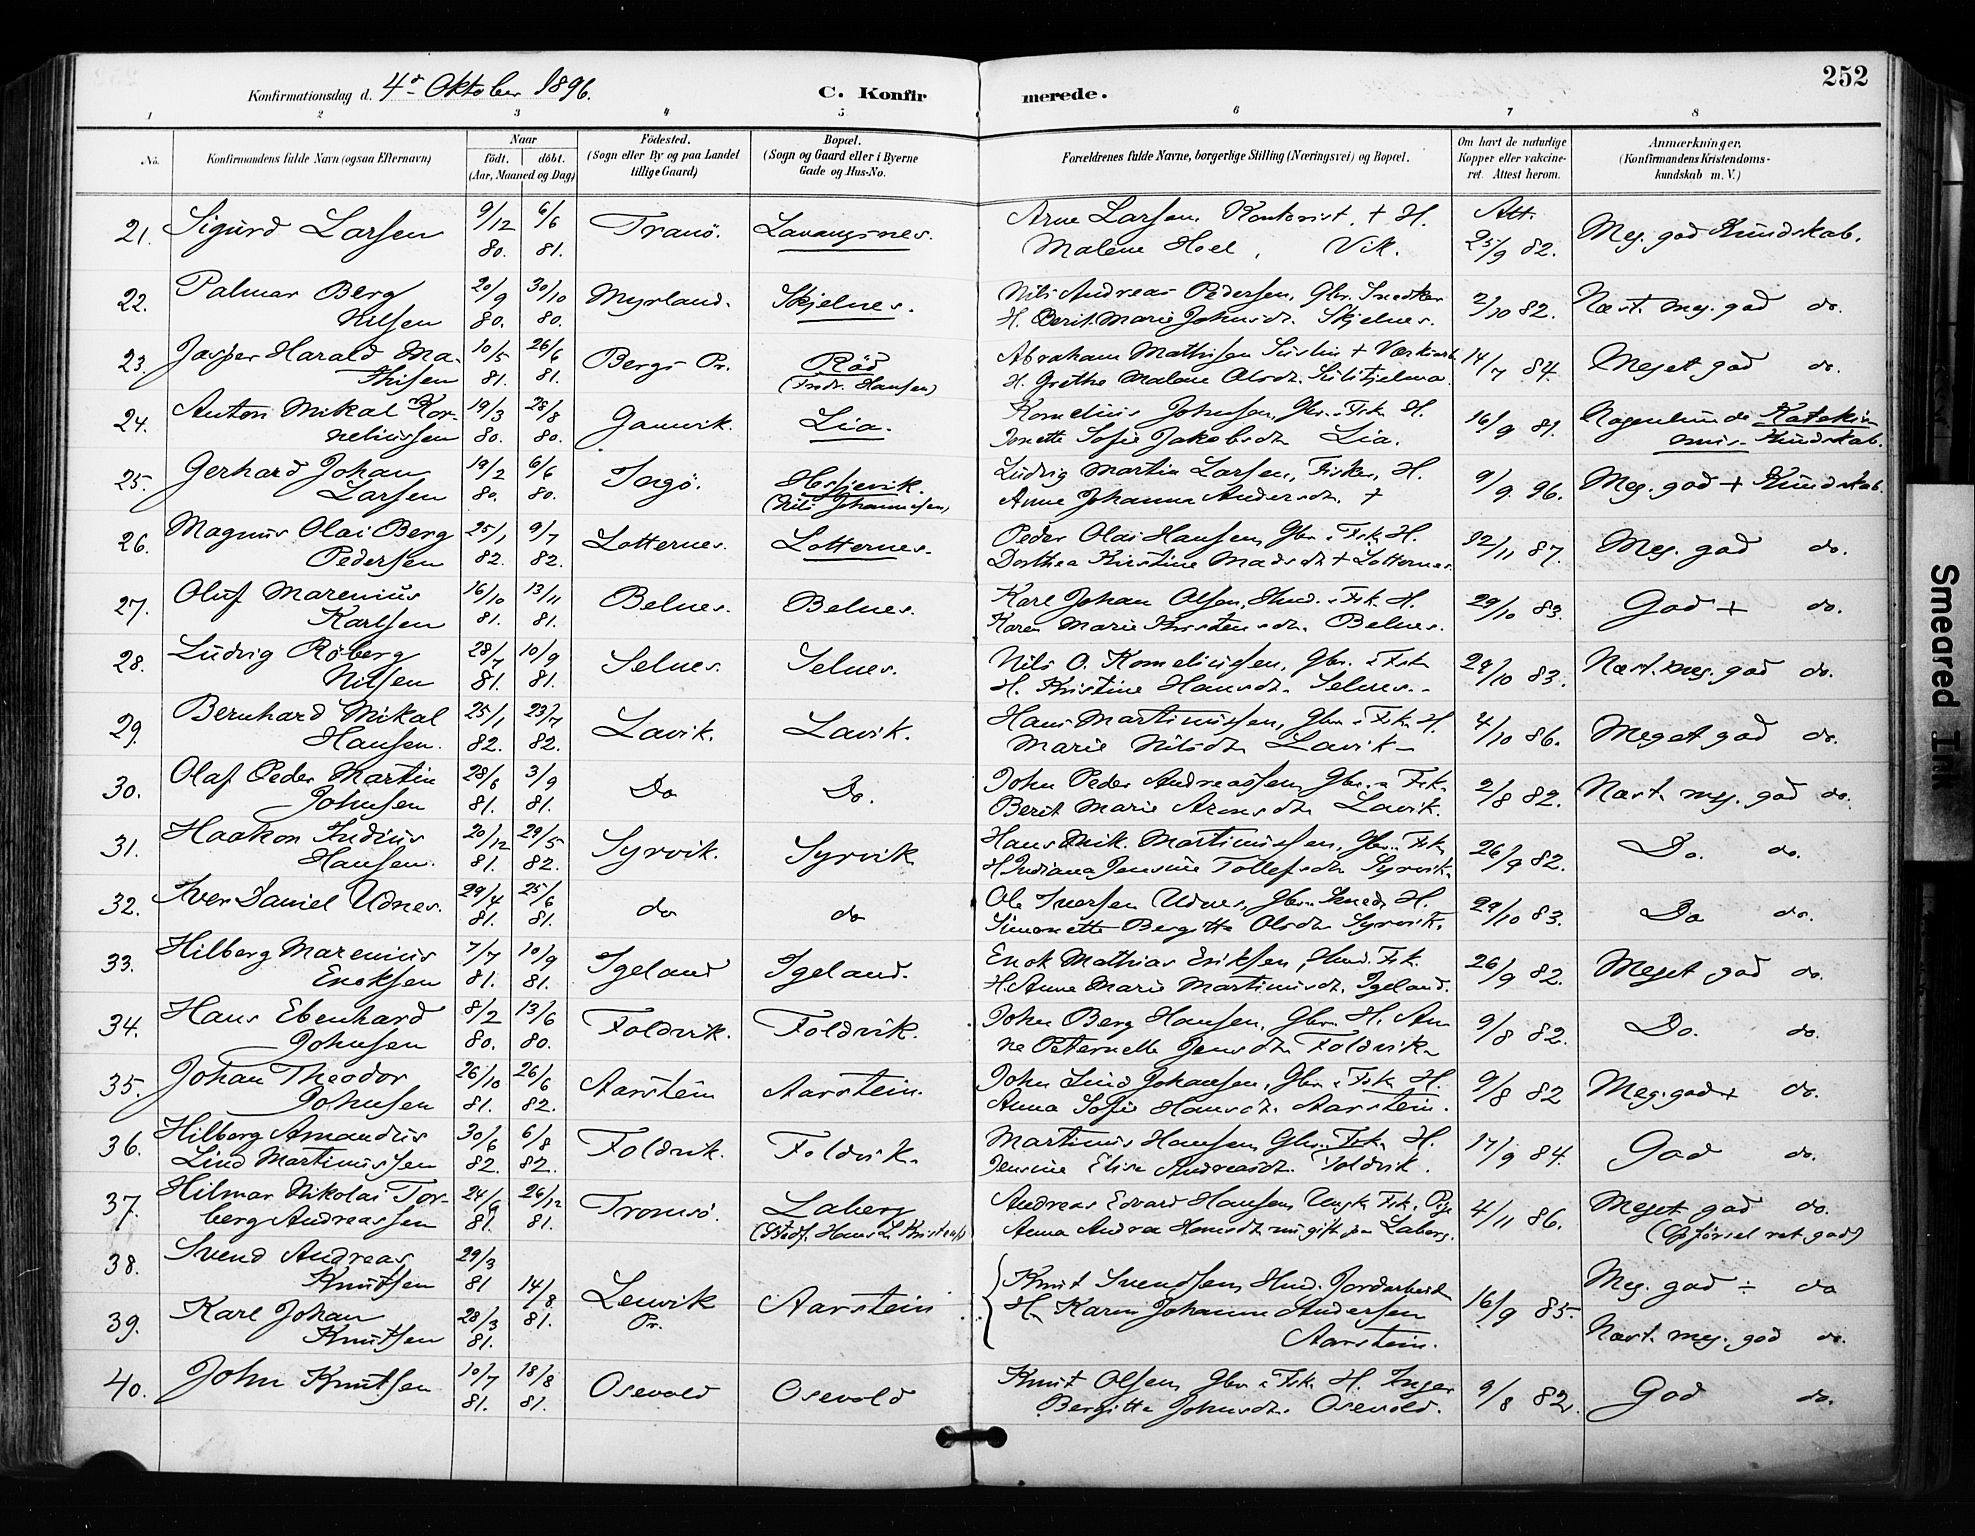 252
Konfirmationsdag d. 4de Oktober 1896.
C. Konfirmerede.
1 2 3 4 5 6 7 8
No. Konfirmandens fulde Navn (ogsaa Efternavn) Naar født. døbt. (Aar, Maaned og Dag) Fødested. (Sogn eller By og paa Landet tillige Gaard) Bopæl. (Sogn og Gaard eller i Byerne Gade og Hus-No. Forældrenes fulde Navne, borgerlige Stilling (Næringsvei) og Bopæl. Om havt de naturlige Kopper eller vakcineret. Attest herom. Anmærkninger. (Konfirmandens Kristendomskundskab m. V.)
21. Sigurd Larsen 9/12 80. 6/6 81. Tranø. Lavangsnes. Arne Larsen, Kontorist, + H. Att. 25/9 82. Meg. god Kundskab.
Malene Hoel, Vik.
22. Palmar Berg 20/9 80. 30/10 80. Myrland. Skjelnes. Nils Andreas Pedersen, Gbr. Snedker 2/10 82. Næst. meg. god do.
Nilsen H. Berit Marie Johnsdt. Skjelnes.
23. Jasper Harald Ma- 10/5 81. 26/6 81. Bergs Pr. Rød Abraham Mathisen 14/7 84. Meget god do.
thisen (Fredr. Hansen) H. Grethe Malene Olsdt. Sulitjelma.
24. Anton Mikal Kor- 19/3 80. 28/8 80. Gamvik. Lia. Kornelius Johnsen, Gbr. & Fisk. H. 16/9 81. Nogenlunde Katekis-
neliussen Jonette Sofie Jakobsdt. Lia. mus-Kundskab.
25. Gerhard Johan 19/2 80. 6/6 80. Ingø. Hesjevik. Ludvig Martin Larsen, Fisker, H. 9/9 96. Meg. god + Kundskab.
Larsen (Nils Johannesen) Anne Johanna Andersdt. +
26. Magnus Olai Berg 25/1 82. 9/7 82. Lotternes. Lotternes. Peder Olai Hansen, Gbr. & Fisk. H. 12/11 87. Meg. god do.
Pedersen Dorthea Kirstine Madsdt. + Lotternes.
27. Oluf Marenius 16/10 81. 13/11 81. Belnes. Belnes. Karl Johan Olsen, Husm. & Fisk. H. 29/10 83. God + do.
Karlsen Karen Marie Kirstensdt. Belnes.
28. Ludvig Røberg 28/7 81. 10/9 81. Selnes. Selnes. Nils O. Korneliussen, Gbr. & Fisk. 29/10 83. Næst. meg. god do.
Nilsen H. Kristine Hansdt. Selnes.
29. Bernhard Mikal 25/1 82. 23/7 82. Lavik. Lavik. Hans Martinussen, Gbr. & Fisk. H. 4/10 86. Meget god do.
Hansen. Marie Nilsdt. Lavik
30. Olaf Peder Martin 28/6 81. 3/9 81. Do Do. John Peder Andreassen, Gbr. & Fisk. 2/8 82. Næst. meg. god do.
Johnsen Berit Marie Aronsdt. Lavik.
31. Haakon Indius 20/12 81. 29/5 82. Syrvik. Syrvik Hans Mik. Martinussen, Gbr. Fisk. 26/9 82. Do. do.
Hansen. H. Indiana Jensine Tollefsdt. Syrvik.
32. Iver Daniel Udnes. 29/4 81. 25/6 81. do do Ole Iversen Udnes, Gbr. Smed. H. 29/10 83. Do do.
Simonette Bergitte Olsdt. Syrvik.
33. Hilberg Marenius 7/7 81. 10/9 81. Igeland Igeland. Enok Mathias Eriksen, Husm. Fisk. 26/9 82. Meget god do.
Enoksen H. Anne Marie Martinusdt. Igeland.
34. Hans Ebenhard 8/2 80. 13/6 80. Foldvik. Foldvik. John Berg Hansen, Gbr. H. An- 9/8 82. Do. do.
Johnsen ne Peternelle Jensdt. Foldvik
35. Johan Theodor 26/10 81. 26/6 82. Aarstein Aarstein. John Lind Johansen, Gbr. & Fisk. H. 9/8 82 Meg. god + do.
Johnsen Anna Sofie Hansdt. Aarstein.
36. Hilberg Amandus 30/6 82. 6/8 82. Foldvik. Foldvik. Martinus Hansen, Gbr. Fisk. H. 17/9 84. God do.
Lind Martinussen Jensine Elisa Andreasdt. Foldvik.
37. Hilmar Nikolai Tor- 24/9 81. 26/12 81. Tromsø. Laberg Andreas Edvard Hansen, Ungk. Fisk. Pige 4/11 86. Meget god do.
berg Andreassen Anna Andrea Hansdt. nu gift paa Laberg. (Opførsel ret god)
38. Svend Andreas 29/3 81 14/8 81. Lenvik Pr. Aarstein Knut Svendsen, Husm. Jordarbeid. 16/9 85. Meg. god ÷ do
Knutsen H. Karen Johanne Andersen
39. Karl Johan 28/3 81. Aarstein. Næst. meg. god do.
Knutsen
40. John Knutsen 10/7 81. 18/8 81. Osevold Osevold Knut Olsen, Gbr. & Fisk. H. Inger 9/8 82. God do.
Bergitte Johnsdt. Osevold.
Smeared Ink